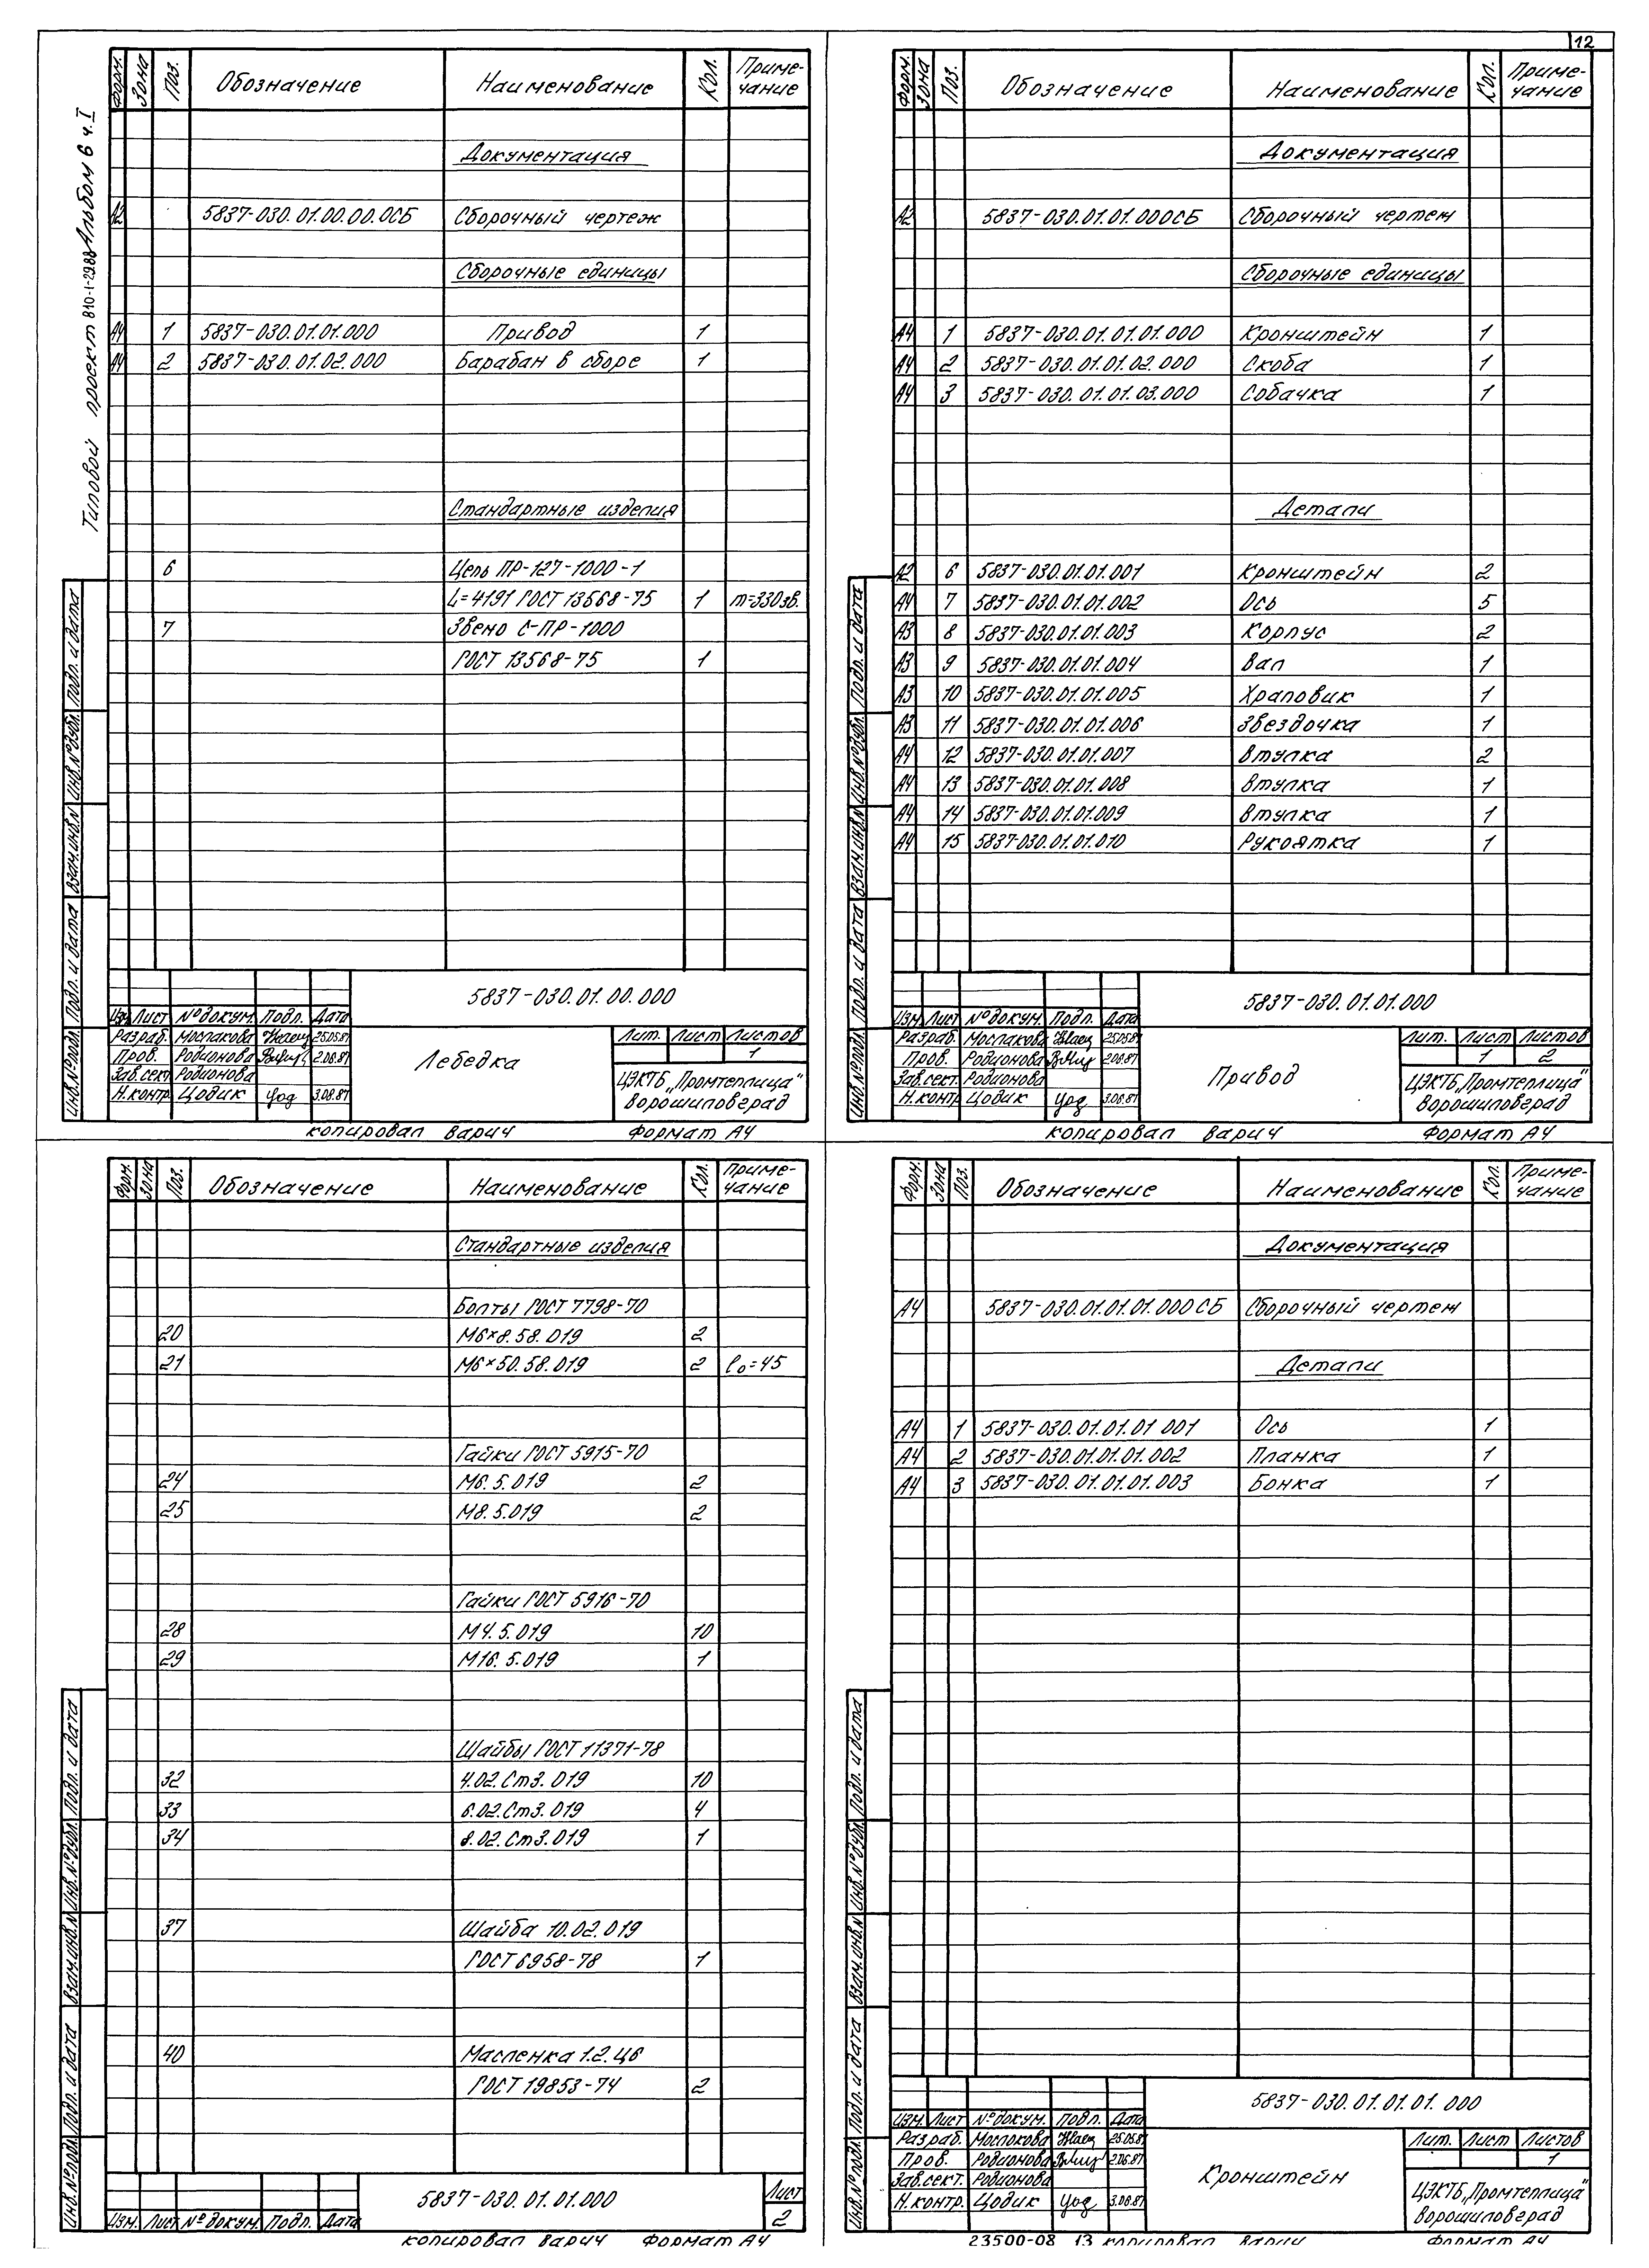 12
Типовой проект 810-1-22.88 Альбом 6 ч.I
Форм. Зона Поз. Обозначение Наименование Кол. Приме-
чание
Документация
А2 5837-030.01.00.00.0СБ Сборочный чертеж
Сборочные единицы
А4 1 5837-030.01.01.000 Привод 1
А4 2 5837-030.01.02.000 Барабан в сборе 1
Стандартные изделия
6 Цепь ПР-127-1000-1
L=4191 ГОСТ 13568-75 1 m=330зв.
7 Звено С-ПР-1000
ГОСТ 13568-75 1
Инв.№подл. Подп. и дата Взам.инв.№ Инв.№дубл. Подп. и дата
5837-030.01.00.000
Изм. Лист №докум. Подп. Дата
Разраб. Моспакова 25.05.87
Пров. Родионова 2.06.87
Зав.сект. Родионова
Н.контр. Цодик 3.06.87
Лебедка
Лит. Лист Листов
1
ЦЭКТБ „Промтеплица"
Ворошиловград
копировал Варич Формат А4
Форм. Зона Поз. Обозначение Наименование Кол. Приме-
чание
Документация
А2 5837-030.01.01.000СБ Сборочный чертеж
Сборочные единицы
А4 1 5837-030.01.01.01.000 Кронштейн 1
А4 2 5837-030.01.01.02.000 Скоба 1
А4 3 5837-030.01.01.03.000 Собачка 1
Детали
А2 6 5837-030.01.01.001 Кронштейн 2
А4 7 5837-030.01.01.002 Ось 5
А3 8 5837-030.01.01.003 Корпус 2
А3 9 5837-030.01.01.004 Вал 1
А3 10 5837-030.01.01.005 Храповик 1
А3 11 5837-030.01.01.006 Звездочка 1
А4 12 5837-030.01.01.007 Втулка 2
А4 13 5837-030.01.01.008 Втулка 1
А4 14 5837-030.01.01.009 Втулка 1
А4 15 5837-030.01.01.010 Рукоятка 1
Инв.№подл. Подп. и дата Взам.инв.№ Инв.№дубл. Подп. и дата
5837-030.01.01.000
Изм. Лист №докум. Подп. Дата
Разраб. Моспакова 25.05.87
Пров. Родионова 2.06.87
Зав.сект. Родионова
Н.контр. Цодик 3.06.87
Привод
Лит. Лист Листов
1 2
ЦЭКТБ „Промтеплица"
Ворошиловград
копировал Варич Формат А4
Форм. Зона Поз. Обозначение Наименование Кол. Приме-
чание
Стандартные изделия
Болты ГОСТ 7798-70
20 М6×8.58.019 2
21 М6×50.58.019 2 l₀=45
Гайки ГОСТ 5915-70
24 М6.5.019 2
25 М8.5.019 2
Гайки ГОСТ 5916-70
28 М4.5.019 10
29 М16.5.019 1
Шайбы ГОСТ 11371-78
32 4.02.Ст3.019 10
33 6.02.Ст3.019 4
34 8.02.Ст3.019 1
37 Шайба 10.02.019
ГОСТ 6958-78 1
40 Масленка 1.2.Ц6
ГОСТ 19853-74 2
Инв.№подл. Подп. и дата Взам.инв.№ Инв.№дубл. Подп. и дата
Изм. Лист №докум. Подп. Дата
5837-030.01.01.000
Лист
2
копировал Варич Формат А4
Форм. Зона Поз. Обозначение Наименование Кол. Приме-
чание
Документация
А4 5837-030.01.01.01.000СБ Сборочный чертеж
Детали
А4 1 5837-030.01.01.01 001 Ось 1
А4 2 5837-030.01.01.01.002 Планка 1
А4 3 5837-030.01.01.01.003 Бонка 1
Инв.№подл. Подп. и дата Взам.инв.№ Инв.№дубл. Подп. и дата
5837-030.01.01.01.000
Изм. Лист №докум. Подп. Дата
Разраб. Моспакова 25.05.87
Пров. Родионова 2.06.87
Зав.сект. Родионова
Н.контр. Цодик 3.06.87
Кронштейн
Лит. Лист Листов
1
ЦЭКТБ „Промтеплица"
Ворошиловград
23500-08 13 копировал Варич Формат А4